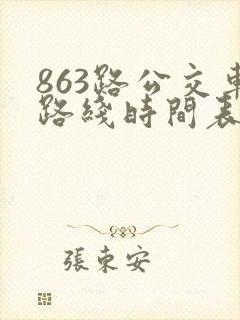 863路公交車
路綫時間表
張東安